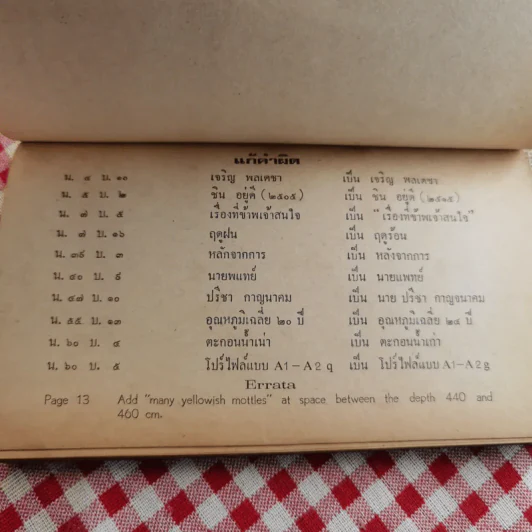 แก้คำผิด
น. ๔ บ. ๑๐ เจริญ พลเดชา เป็น เจริญ พลเตชา
น. ๕ บ. ๒ ชิน อยู่ดี (๒๕๐๕) เป็น ชิน อยู่ดี (๒๕๑๕)
น. ๗ บ. ๕ เรื่องที่ข้าพเจ้าสนใจ เป็น "เรื่องที่ข้าพเจ้าสนใจ"
น. ๗ บ. ๑๖ ฤดูฝน เป็น ฤดูร้อน
น. ๓๙ บ. ๓ หลักจากการ เป็น หลังจากการ
น. ๔๐ บ. ๙ นายพแทย์ เป็น นายแพทย์
น. ๔๗ บ. ๑๐ ปรีชา กาญาคม เป็น นาย ปรีชา กาญจนาคม
น. ๕๕ บ. ๑๓ อุณหภูมิเฉลี่ย ๒๐ ปี เป็น อุณหภูมิเฉลี่ย ๒๔ ปี
น. ๖๐ บ. ๔ ตะกอนน้ำเน่า เป็น ตะกอนน้ำเก่า
น. ๖๐ บ. ๕ โปร์ไฟล์แบบ A1-A2 q เป็น โปร์ไฟล์แบบ A1-A2 g
Errata
Page 13 Add "many yellowish mottles" at space between the depth 440 and
460 cm.